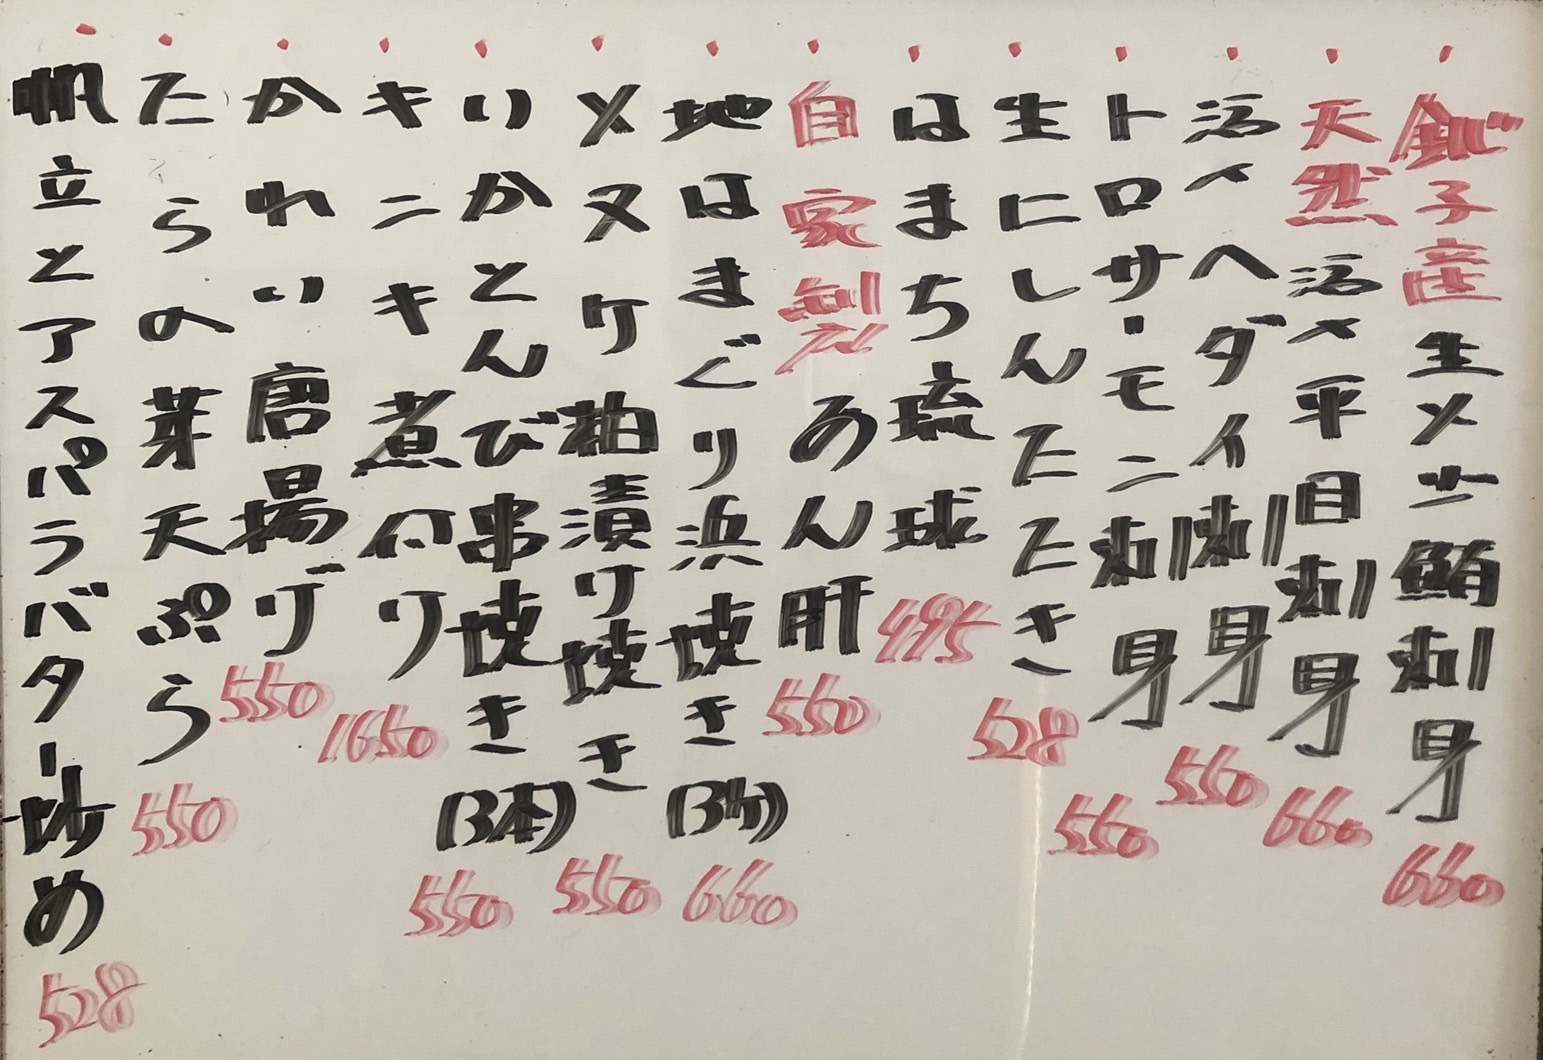 銚子産生メジ鮪刺身 660
天然活〆平目刺身 660
活〆ヘダイ刺身 550
トロサーモン刺身 550
生にしんたたき 528
はまち琉球 495
自家製あん肝 550
地はまぐり浜焼き(3ケ) 660
メヌケ粕漬け焼き 550
いかとんび串焼き(3本) 550
キンキ煮付け 1650
かれい唐揚げ 550
たらの芽天ぷら 550
帆立とアスパラバター炒め 528